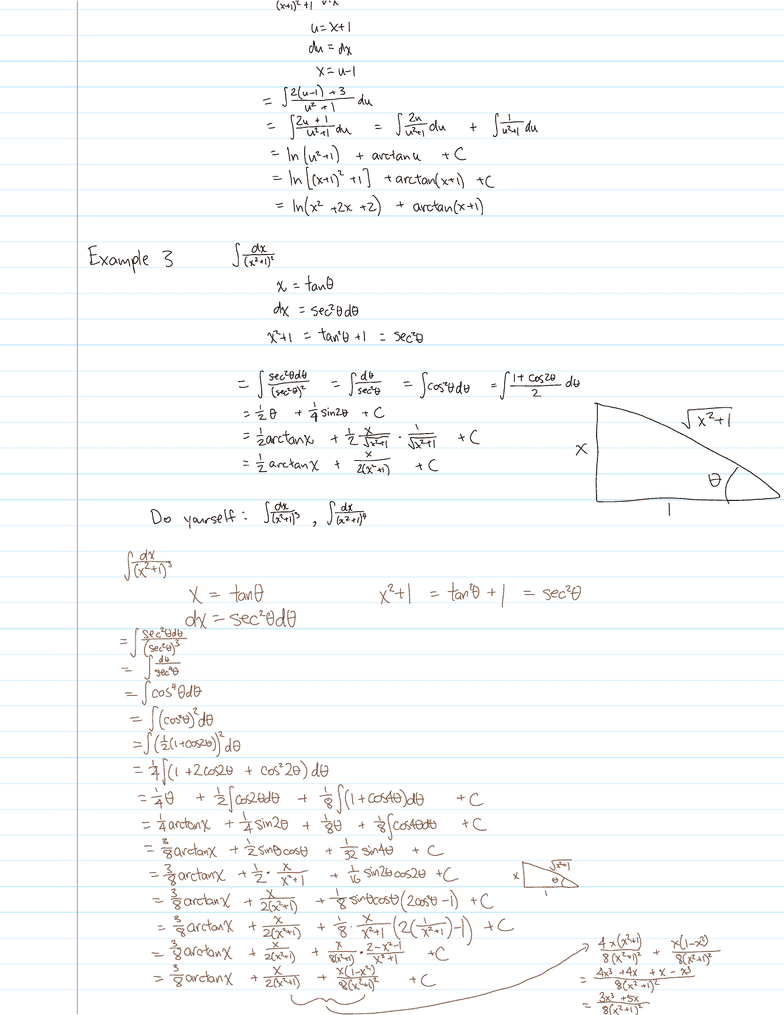 (x+1)²+1 dx
u = x+1
du = dx
x = u-1
= ∫ (2(u-1)+3)/(u²+1) du
= ∫ (2u+1)/(u²+1) du = ∫ 2u/(u²+1) du + ∫ 1/(u²+1) du
= ln(u²+1) + arctan u + C
= ln[(x+1)²+1] + arctan(x+1) + C
= ln(x²+2x+2) + arctan(x+1)
Example 3 ∫ dx/(x²+1)²
x = tanθ
dx = sec²θdθ
x²+1 = tan²θ+1 = sec²θ
= ∫ sec²θdθ/(sec²θ)² = ∫ dθ/sec²θ = ∫cos²θdθ = ∫ (1+cos2θ)/2 dθ
= ½θ + ¼sin2θ + C
= ½arctanx + ½ x/√(x²+1) · 1/√(x²+1) + C
= ½arctanx + x/(2(x²+1)) + C
√(x²+1)
x
θ
1
Do yourself: ∫ dx/(x²+1)³ , ∫ dx/(x²+1)⁴
∫ dx/(x²+1)³
x = tanθ x²+1 = tan²θ+1 = sec²θ
dx = sec²θdθ
= ∫ sec²θdθ/(sec²θ)³
= ∫ dθ/sec⁴θ
= ∫cos⁴θdθ
= ∫(cos²θ)²dθ
= ∫(½(1+cos2θ))²dθ
= ¼∫(1+2cos2θ + cos²2θ)dθ
= ¼θ + ½∫cos2θdθ + ⅛∫(1+cos4θ)dθ + C
= ¼arctanx + ¼sin2θ + ⅛θ + ⅛∫cos4θdθ + C
= ⅜arctanx + ½sinθcosθ + 1/32 sin4θ + C
= ⅜arctanx + ½ · x/(x²+1) + 1/16 sin2θcos2θ + C
√(x²+1)
x
θ
1
= ⅜arctanx + x/(2(x²+1)) + ⅛sinθcosθ(2cos²θ-1) + C
= ⅜arctanx + x/(2(x²+1)) + ⅛ · x/(x²+1) (2(1/(x²+1))-1) + C
= ⅜arctanx + x/(2(x²+1)) + x/(8(x²+1)) · (2-x²-1)/(x²+1) + C
= ⅜arctanx + x/(2(x²+1)) + x(1-x²)/(8(x²+1)²) + C
4x(x²+1)/(8(x²+1)²) + x(1-x²)/(8(x²+1)²)
= (4x³+4x + x-x³)/(8(x²+1)²)
= (3x³+5x)/(8(x²+1)²)